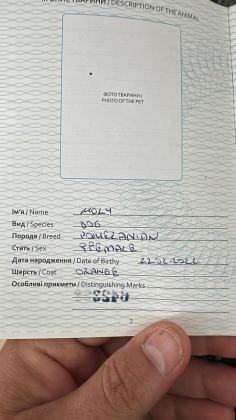 ТВАРИНИ / DESCRIPTION OF THE ANIMAL
ФОТО ТВАРИНИ /
PHOTO OF THE PET
Ім'я / Name MOLY
Вид / Species DOG
Порода / Breed POMERANIAN
Стать / Sex FEMALE
Дата народження / Date of Birthy 22.02.2022
Шерсть / Coat ORANGE
Особливі прикмети / Distinguishing Marks
2